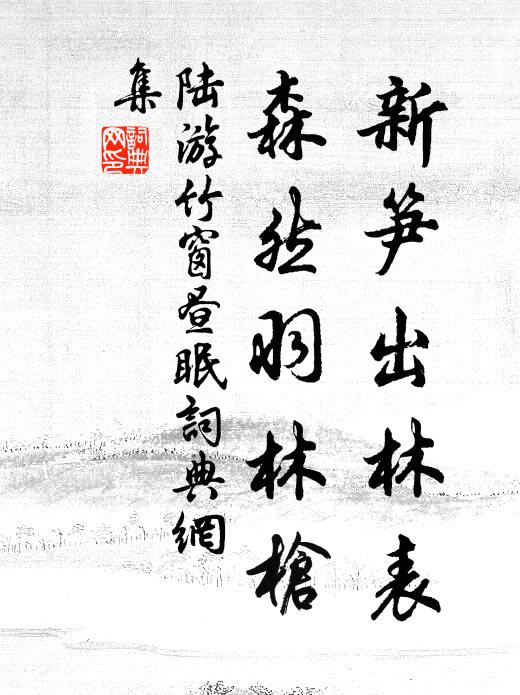 新笋出林表
森然羽林槍
陆游竹窗昼眠詞典網
集
詞典
网印